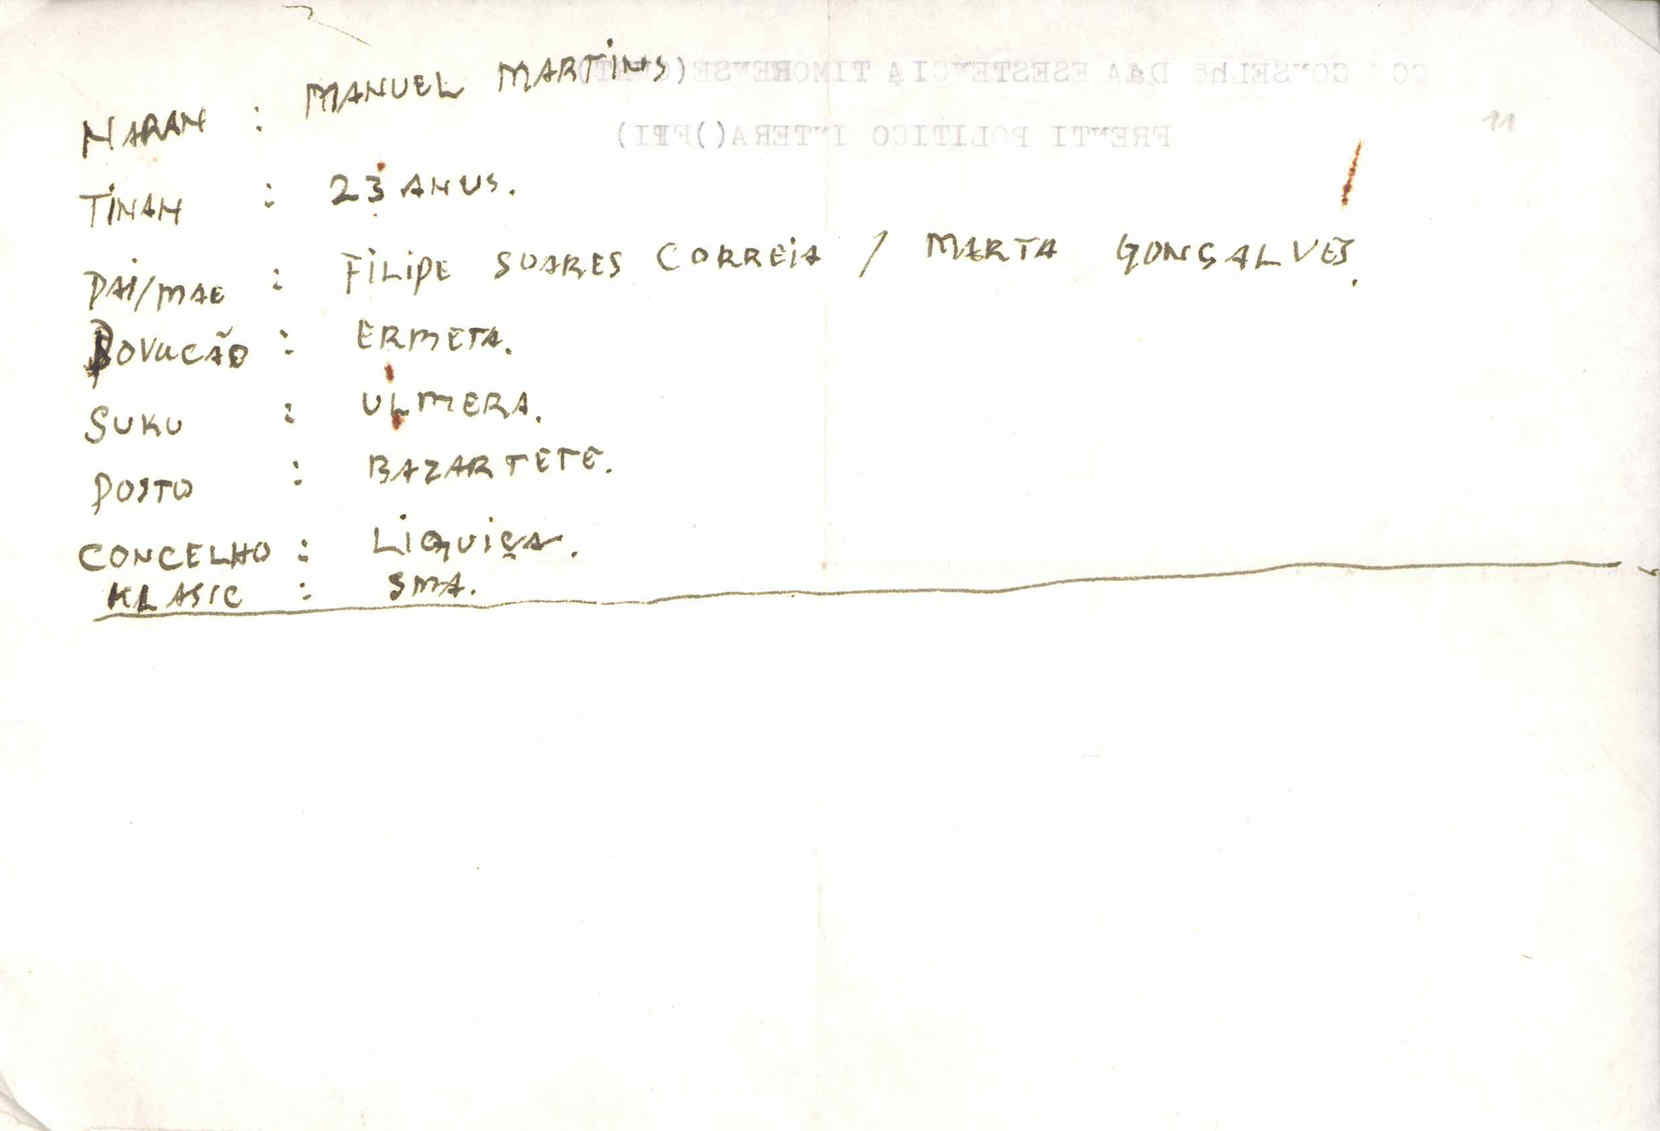 NARAN : MANUEL MARTINS
TINAN : 23 ANUS.
PAI/MAE : FILIPE SOARES CORREIA / MARTA GONSALVES.
POVUCÃO : ERMETA.
SUKU : ULMERA.
POSTO : BAZARTETE.
CONCELHO : LIQUIÇA.
KLASIC : SMA.